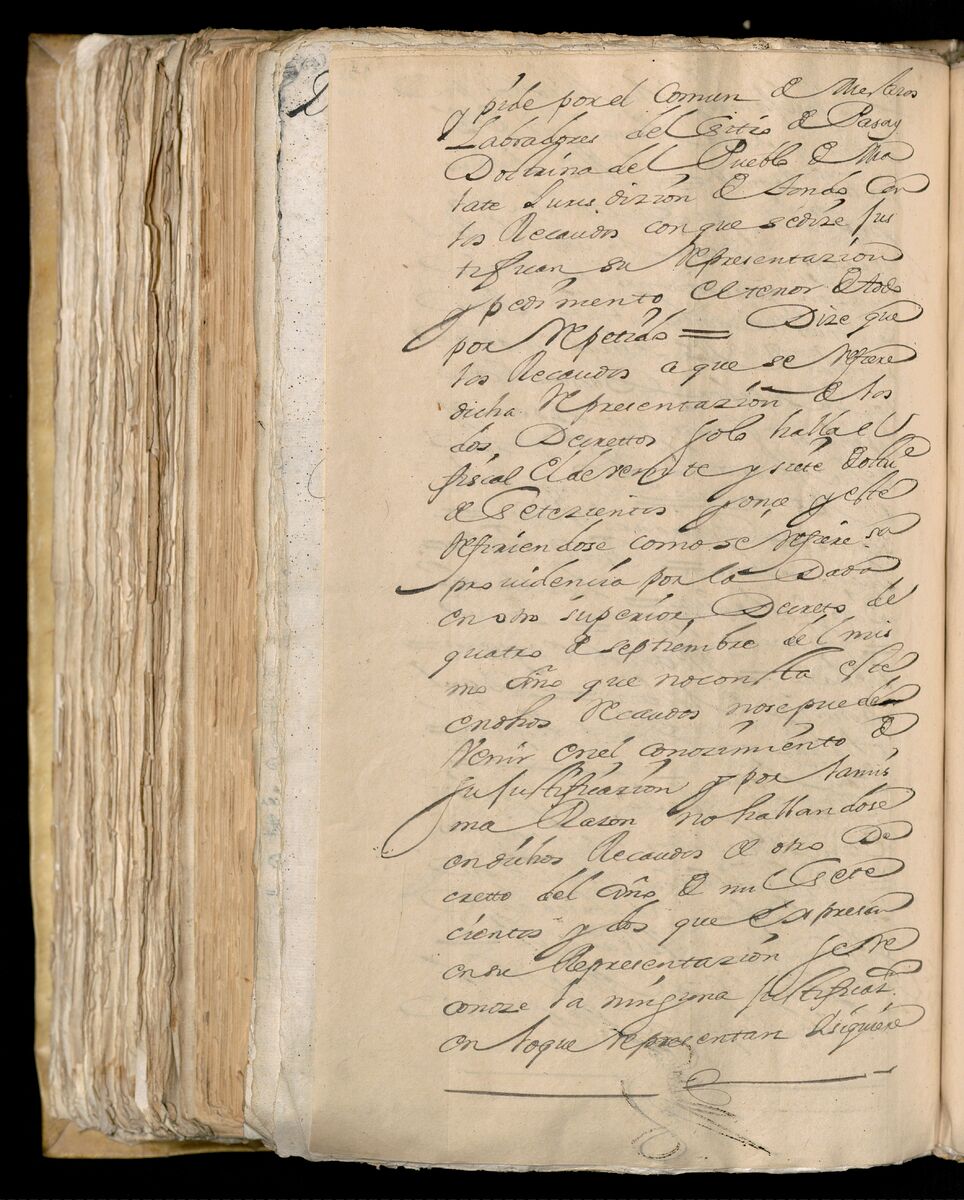 y pide por el Comun de Mestizos
Labradores del Sitio de Pasay
Doctrina del Pueblo de Ma
late Jurisdizion de tondo Con
los Recaudos con que se dize Jus
tifican su Representazion
y pedimento el tenor de todo
por Repetido = Dize que
los Recaudos a que se refiere
dicha Representazion de los
dos Decrettos solo halla el
fiscal el de veinte y siete de
de Setezientos y onze y este
refiriendose como se refiere su
providencia por la Dada
en otro superior Decreto de
quatro de septiembre del mis
mo Año que no consta este
en dhos Recaudos no se puede
venir en el conozimiento de
su Justificazion y por la mis
ma Razon no hallandose
en dichos Recaudos el otro De
cretto del año de mil Sete
cientos y dos que expresan
en su Representazion se re
conoze la ninguna Justificaz.
en lo que representan